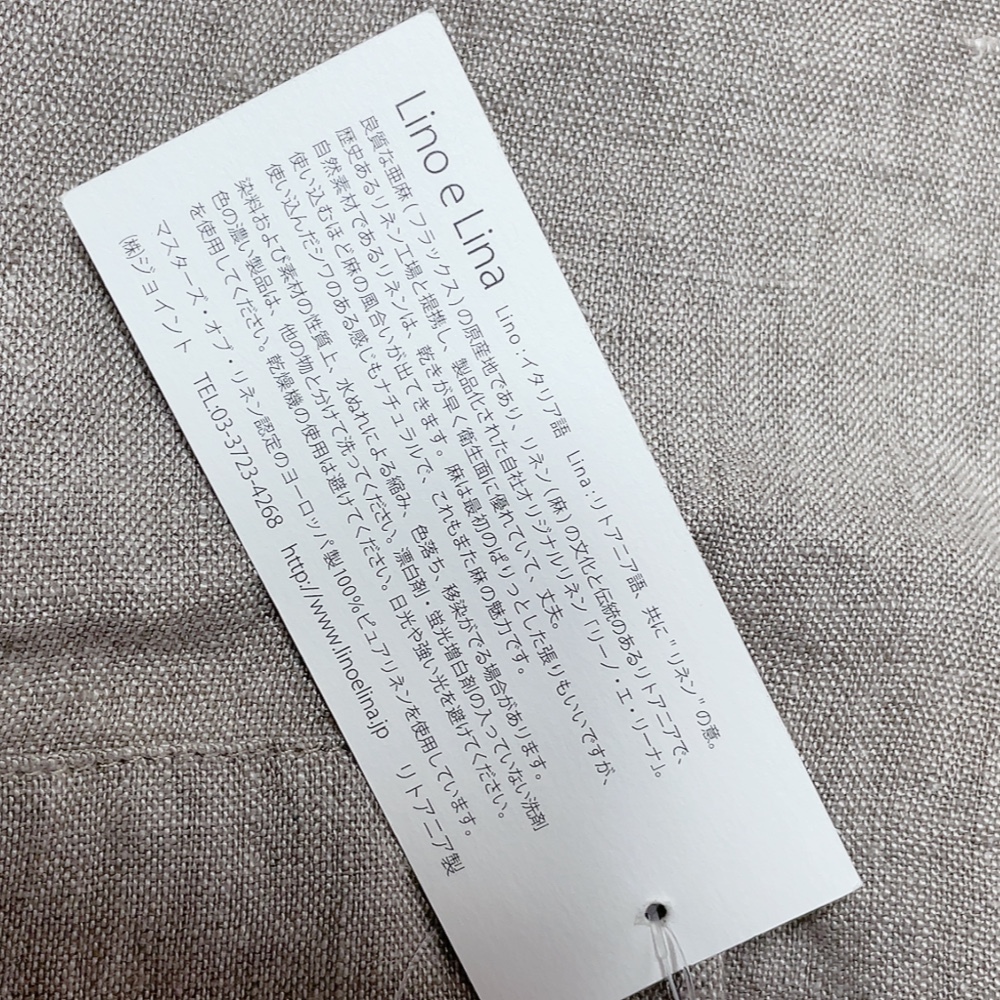 Lino e Lina Lino:イタリア語 Lina:リトアニア語、共に"リネン"の意。
良質な亜麻(フラックス)の原産地であり、リネン(麻)の文化と伝統のあるリトアニアで、
歴史あるリネン工場と提携し、製品化された自社オリジナルリネン「リーノ・エ・リーナ」。
自然素材であるリネンは、乾きが早く衛生面に優れていて、丈夫。
使い込むほど麻の風合いが出てきます。麻は最初のぱりっとした張りもいいですが、
使い込んだシワのある感じもナチュラルで、これもまた麻の魅力です。
染料および素材の性質上、水ぬれによる縮み、色落ち、移染がでる場合があります。
色の濃い製品は、他の物と分けて洗ってください。漂白剤・蛍光増白剤の入っていない洗剤
を使用してください。乾燥機の使用は避けてください。日光や強い光を避けてください。
マスターズ・オブ・リネン認定のヨーロッパ製100%ピュアリネンを使用しています。
(株)ジョイント TEL.03-3723-4268 http://www.linoelina.jp リトアニア製